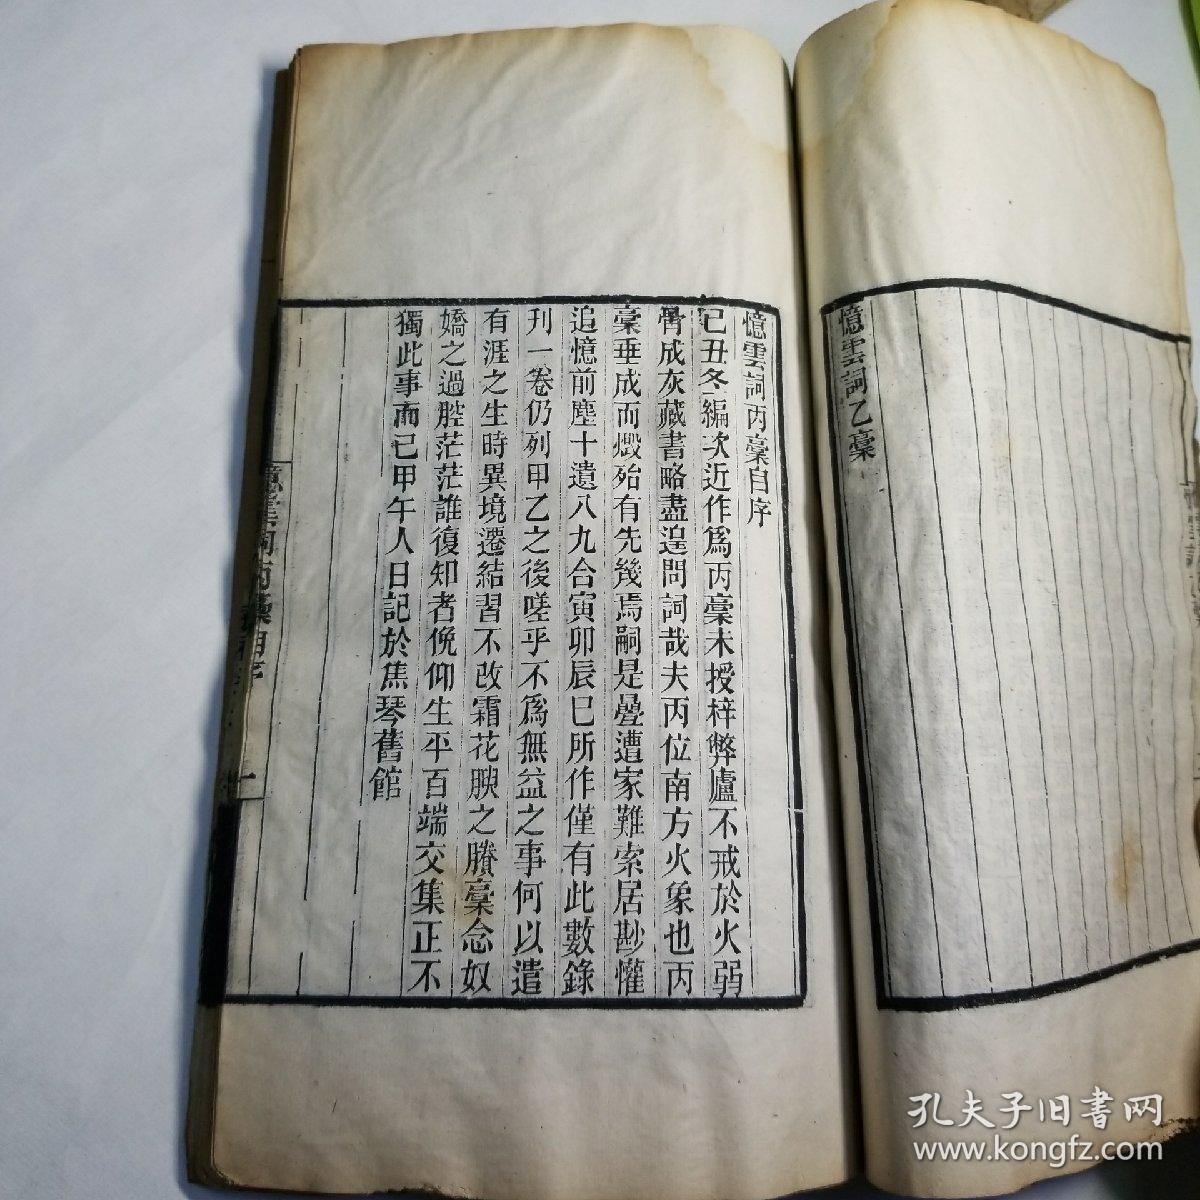 憶雲詞乙稾
憶雲詞丙稾自序
己丑冬編次近作爲丙稾未授梓弊廬不戒於火弱
骨成灰藏書略盡遑問詞哉夫丙位南方火象也丙
稾垂成而燬殆有先幾焉嗣是疊遭家難索居尠懽
追憶前塵十遺八九合寅卯辰巳所作僅有此數錄
刊一卷仍列甲乙之後嗟乎不爲無益之事何以遣
有涯之生時異境遷結習不改霜花腴之賸稾念奴
嬌之過腔茫茫誰復知者俛仰生平百端交集正不
獨此事而已甲午人日記於蕉琴舊館
憶雲詞丙稾自序
一
孔夫子旧書网
www.kongfz.com